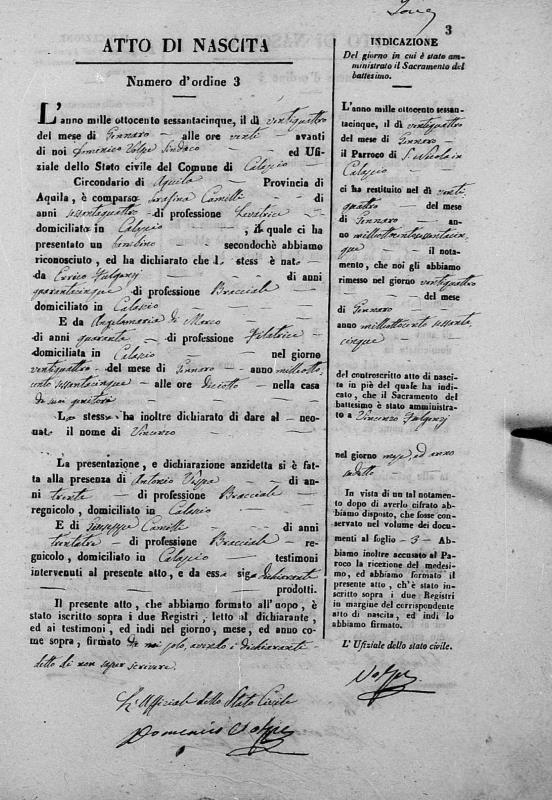 3
ATTO DI NASCITA
Numero d'ordine 3
L'anno mille ottocento sessantacinque, il dì ventiquattro
del mese di Gennaro alle ore venti avanti
di noi Domenico Volpe Sindaco ed Ufi-
ziale dello Stato civile del Comune di Calascio
Circondario di Aquila Provincia di
Aquila, è comparsa Serafina Camilli di
anni sessantaquattro di professione Levatrice
domiciliata in Calascio, la quale ci ha
presentato un bambino secondochè abbiamo
riconosciuto, ed ha dichiarato che l stess è nat
da Errico Fulgenzj di anni
quarantacinque di professione Bracciale
domiciliato in Calascio
E da Angelamaria di Marco
di anni quaranta di professione Filatrice
domiciliata in Calascio nel giorno
ventiquattro del mese di Gennaro anno milleotto-
cento sessantacinque alle ore diciotto nella casa
di suoi genitori
L stess ha inoltre dichiarato di dare al neo-
nat il nome di Vincenzo
La presentazione, e dichiarazione anzidetta si è fat-
ta alla presenza di Antonio di an-
ni trenta di professione Bracciale
regnicolo, domiciliato in Calascio
E di Giuseppe Camilli di anni
trentatre di professione Bracciale re-
gnicolo, domiciliato in Calascio testimoni
intervenuti al presente atto, e da essa sig. dichiarante
prodotti.
Il presente atto, che abbiamo formato all'uopo, è
stato iscritto sopra i due Registri, letto al dichiarante,
ed ai testimoni, ed indi nel giorno, mese, ed anno co-
me sopra, firmato da noi solo, avendo i dichiaranti
detto di non saper scrivere.
L'Uffiziale dello Stato Civile
Domenico Volpe
INDICAZIONE
Del giorno in cui è stato am-
ministrato il Sacramento del
battesimo.
L'anno mille ottocento sessan-
tacinque, il dì ventiquattro
del mese di Gennaro
il Parroco di S. Nicola in
Calascio
ci ha restituito nel dì venti-
quattro del mese
di Gennaro an-
no milleottocentosessantacin-
que il nota-
mento, che noi gli abbiamo
rimesso nel giorno ventiquattro
del mese
di Gennaro
anno milleottocento sessanta
cinque
del controscritto atto di nasci-
ta in piè del quale ha indi-
cato, che il Sacramento del
battesimo è stato amministra-
to a Vincenzo Fulgenzj
nel giorno mese, ed anno
sudetto
In vista di un tal notamento
dopo di averlo cifrato abbia-
mo disposto, che fosse con-
servato nel volume dei docu-
menti al foglio 3 Ab-
biamo inoltre accusato al Pa-
roco la ricezione del medesi-
mo, ed abbiamo formato il
presente atto, ch'è stato in-
scritto sopra i due Registri
in margine del corrispondente
atto di nascita, ed indi lo
abbiamo firmato.
L'Ufiziale dello stato civile.
Volpe